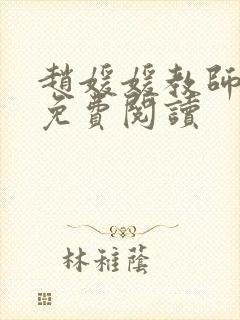 趙媛媛教師
免費閱讀
林稚蔭